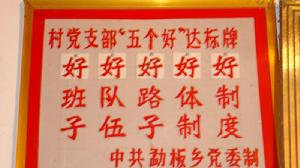 村党支部“五个好”达标牌
好好好好好
班队路体制
子伍子制度
中共勐板乡党委制